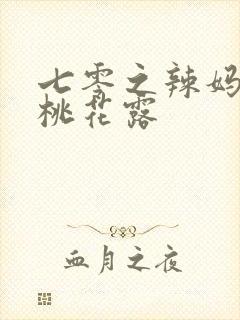 七零之辣妈
桃花露
血月之夜